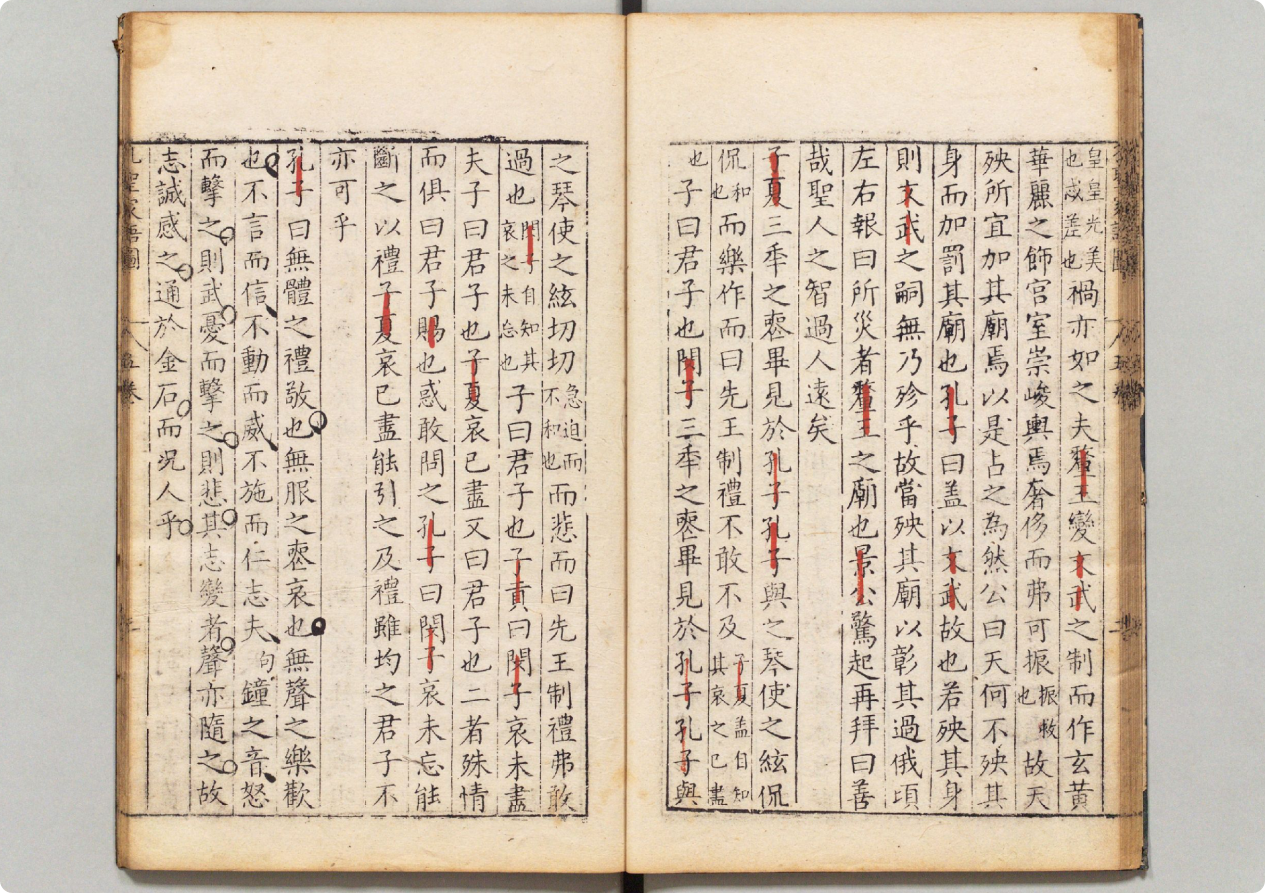 皇皇光美也忒差也禍亦如之夫釐王變文武之制而作玄黃
華麗之飾宮室崇峻輿焉奢侈而弗可振振救也故天
殃所宜加其廟焉以是占之為然公曰天何不殃其
身而加罰其廟也孔子曰盖以文武故也若殃其身
則文武之嗣無乃殄乎故當殃其廟以彰其過俄頃
左右報曰所災者釐王之廟也景公驚起再拜曰善
哉聖人之智過人遠矣
子夏三秊之喪畢見於孔子孔子與之琴使之絃侃
侃和也而樂作而曰先王制禮不敢不及子夏盖自知其哀之已盡
也子曰君子也閔子三秊之喪畢見於孔子孔子與
之琴使之絃切切急迫而不和也而悲而曰先王制禮弗敢
過也閔子自知其哀之未忘也子曰君子也子貢曰閔子哀未盡
夫子曰君子也子夏哀已盡又曰君子也二者殊情
而俱曰君子賜也惑敢問之孔子曰閔子哀未忘能
斷之以禮子夏哀已盡能引之及禮雖均之君子不
亦可乎
孔子曰無體之禮敬也無服之喪哀也無聲之樂歡
也不言而信不動而威不施而仁志夫句鐘之音怒
而擊之則武憂而擊之則悲其志變者聲亦隨之故
志誠感之通於金石而况人乎
孔聖家語圖 五卷